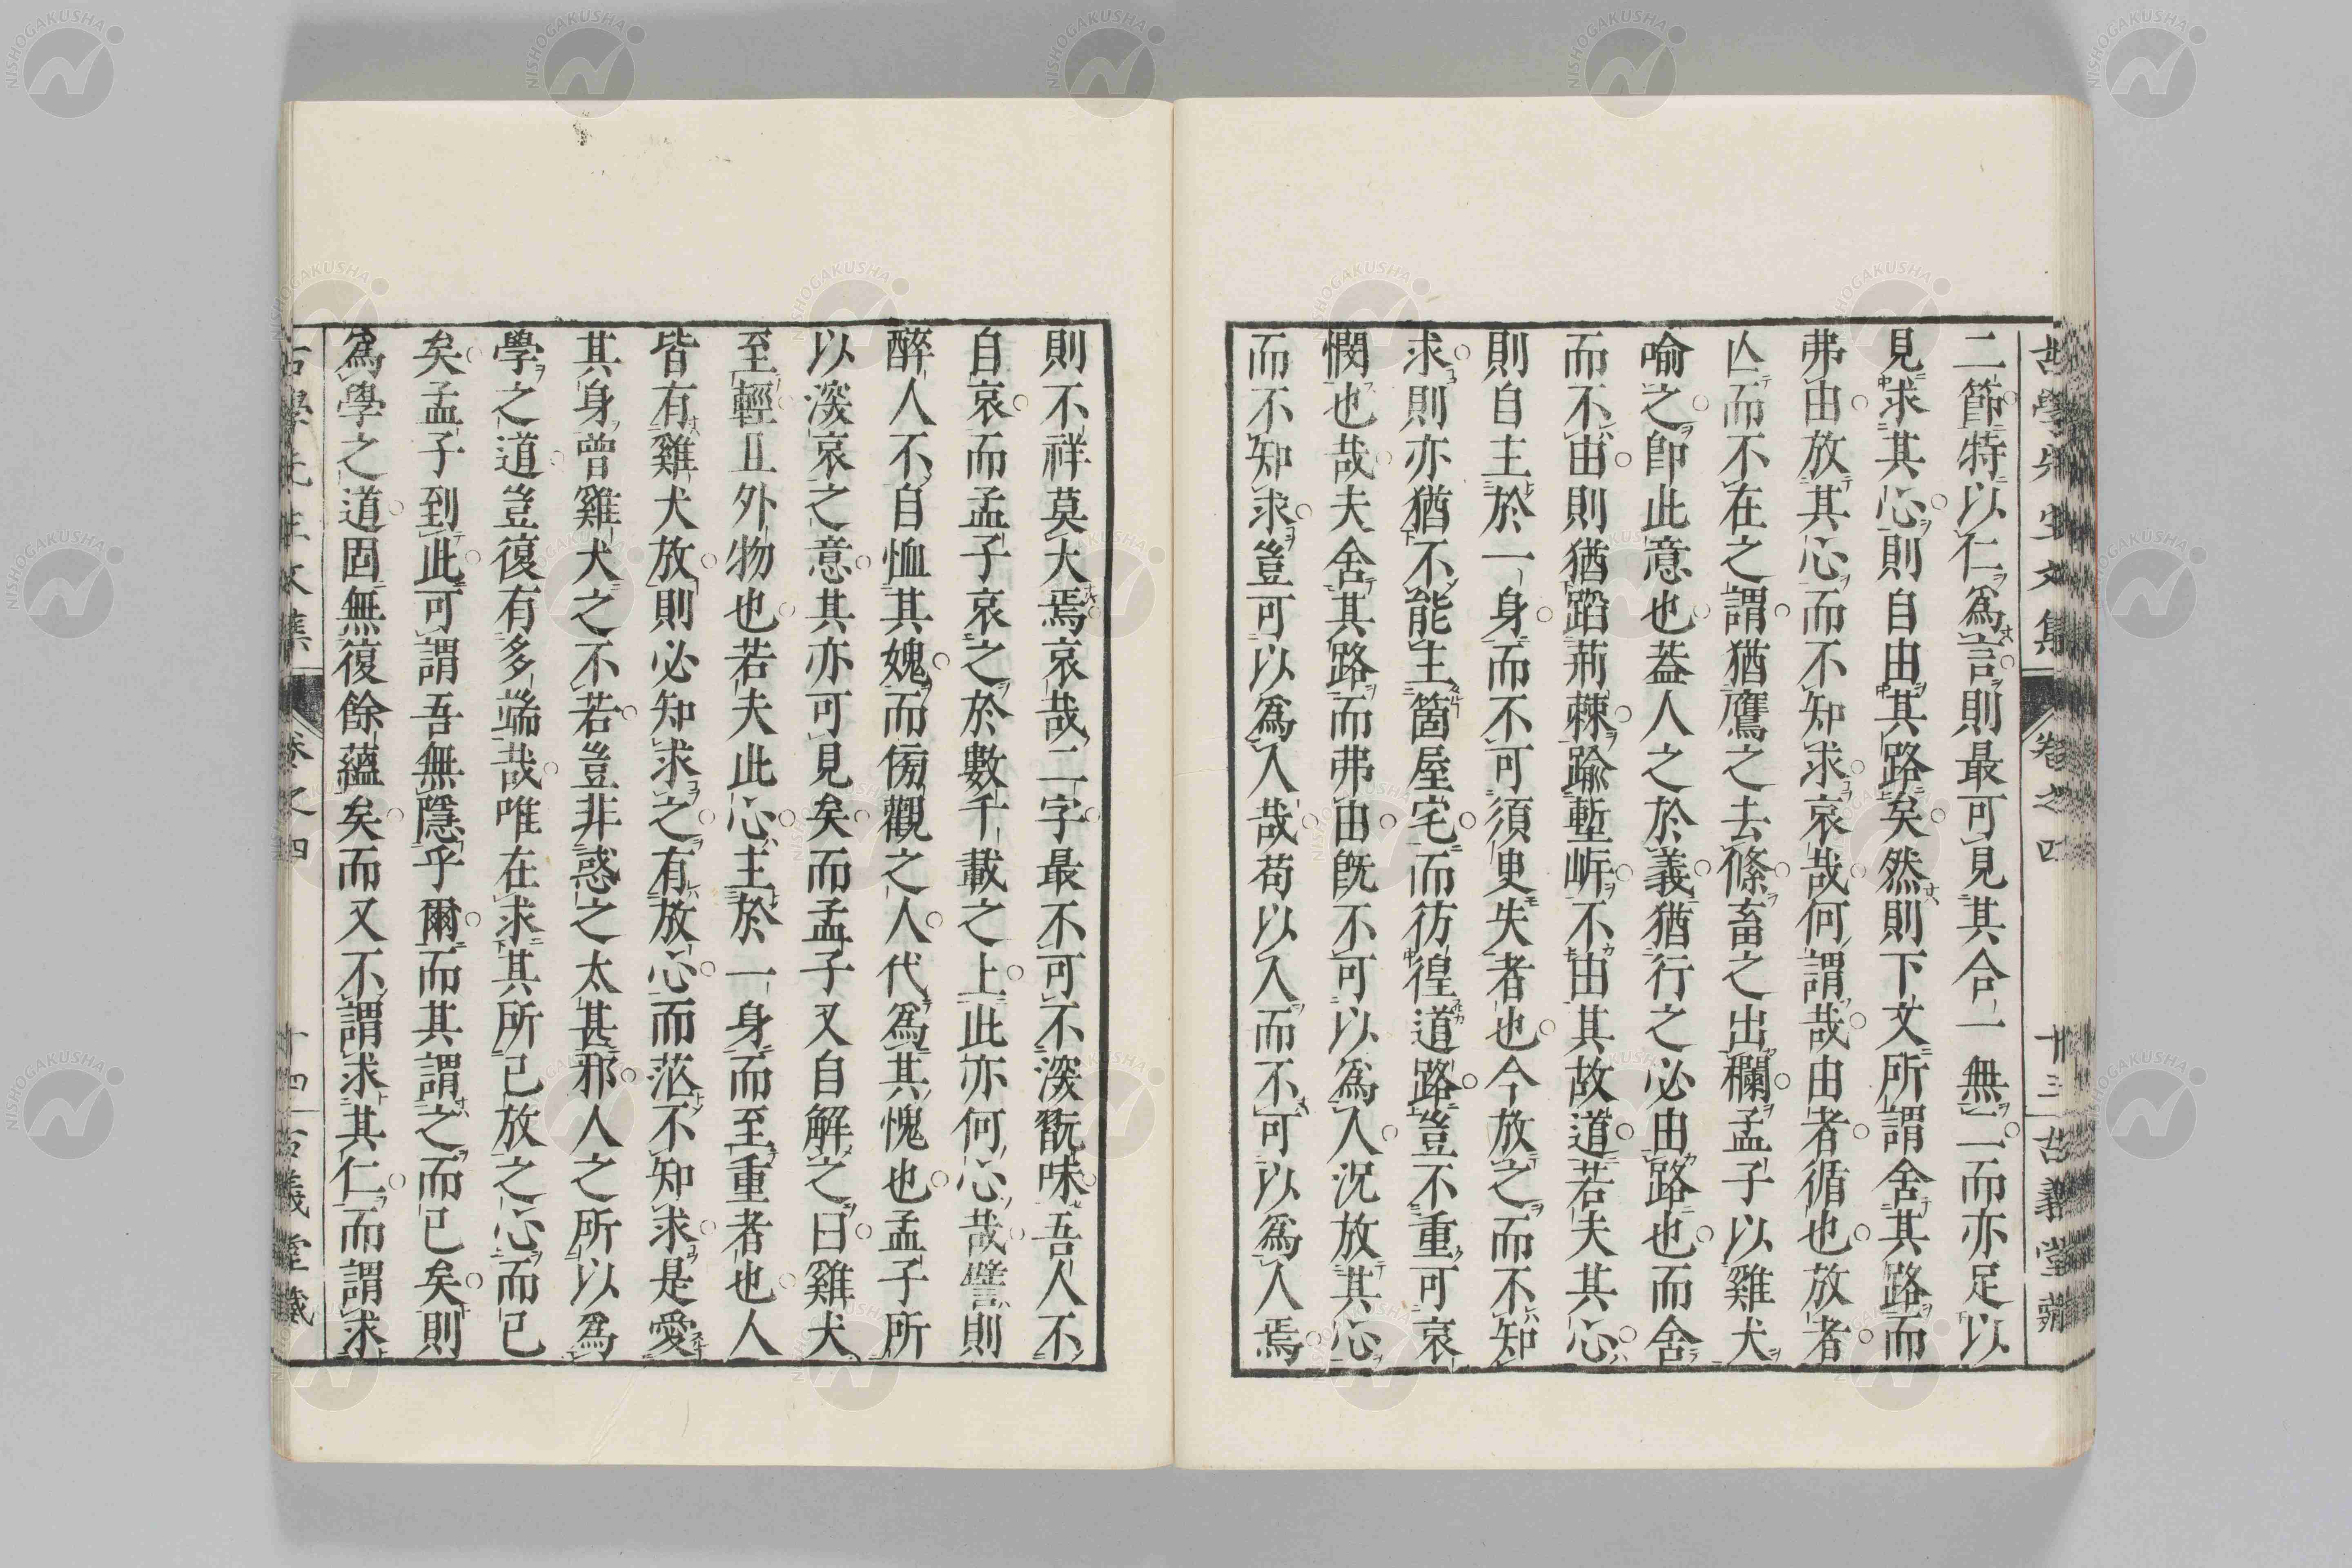 古學先生文集 卷之四 十三 古義堂藏
二節特以仁爲言則最可見其合一無二而亦足以
見求其心則自由其路矣然則下文所謂舍其路而
弗由放其心而不知求哀哉何謂哉由者循也放者
亾而不在之謂猶鷹之去絛畜之出欄孟子以雞犬
喻之卽此意也葢人之於義猶行之必由路也而舍
而不由則猶蹈荊棘踰塹岓不由其故道若夫其心
則自主於一身而不可須臾失者也今放之而不知
求則亦猶不能主箇屋宅而彷徨道路豈不重可哀
憫也哉夫舍其路而弗由旣不可以爲人況放其心
而不知求豈可以爲人哉苟以人而不可以爲人焉
則不祥莫大焉哀哉二字最不可不深翫味吾人不
自哀而孟子哀之於數千載之上此亦何心哉譬則
醉人不自恤其媿而傍觀之人代爲其愧也孟子所
以深哀之意其亦可見矣而孟子又自解之曰雞犬
至輕且外物也若夫此心主於一身而至重者也人
皆有雞犬放則必知求之有放心而茫不知求是愛
其身曾雞犬之不若豈非惑之太甚邪人之所以爲
學之道豈復有多端哉唯在求其所已放之心而已
矣孟子到此可謂吾無隱乎爾而其謂之而已矣則
爲學之道固無復餘蘊矣而又不謂求其仁而謂求
古學先生文集 卷之四 十四 古義堂藏